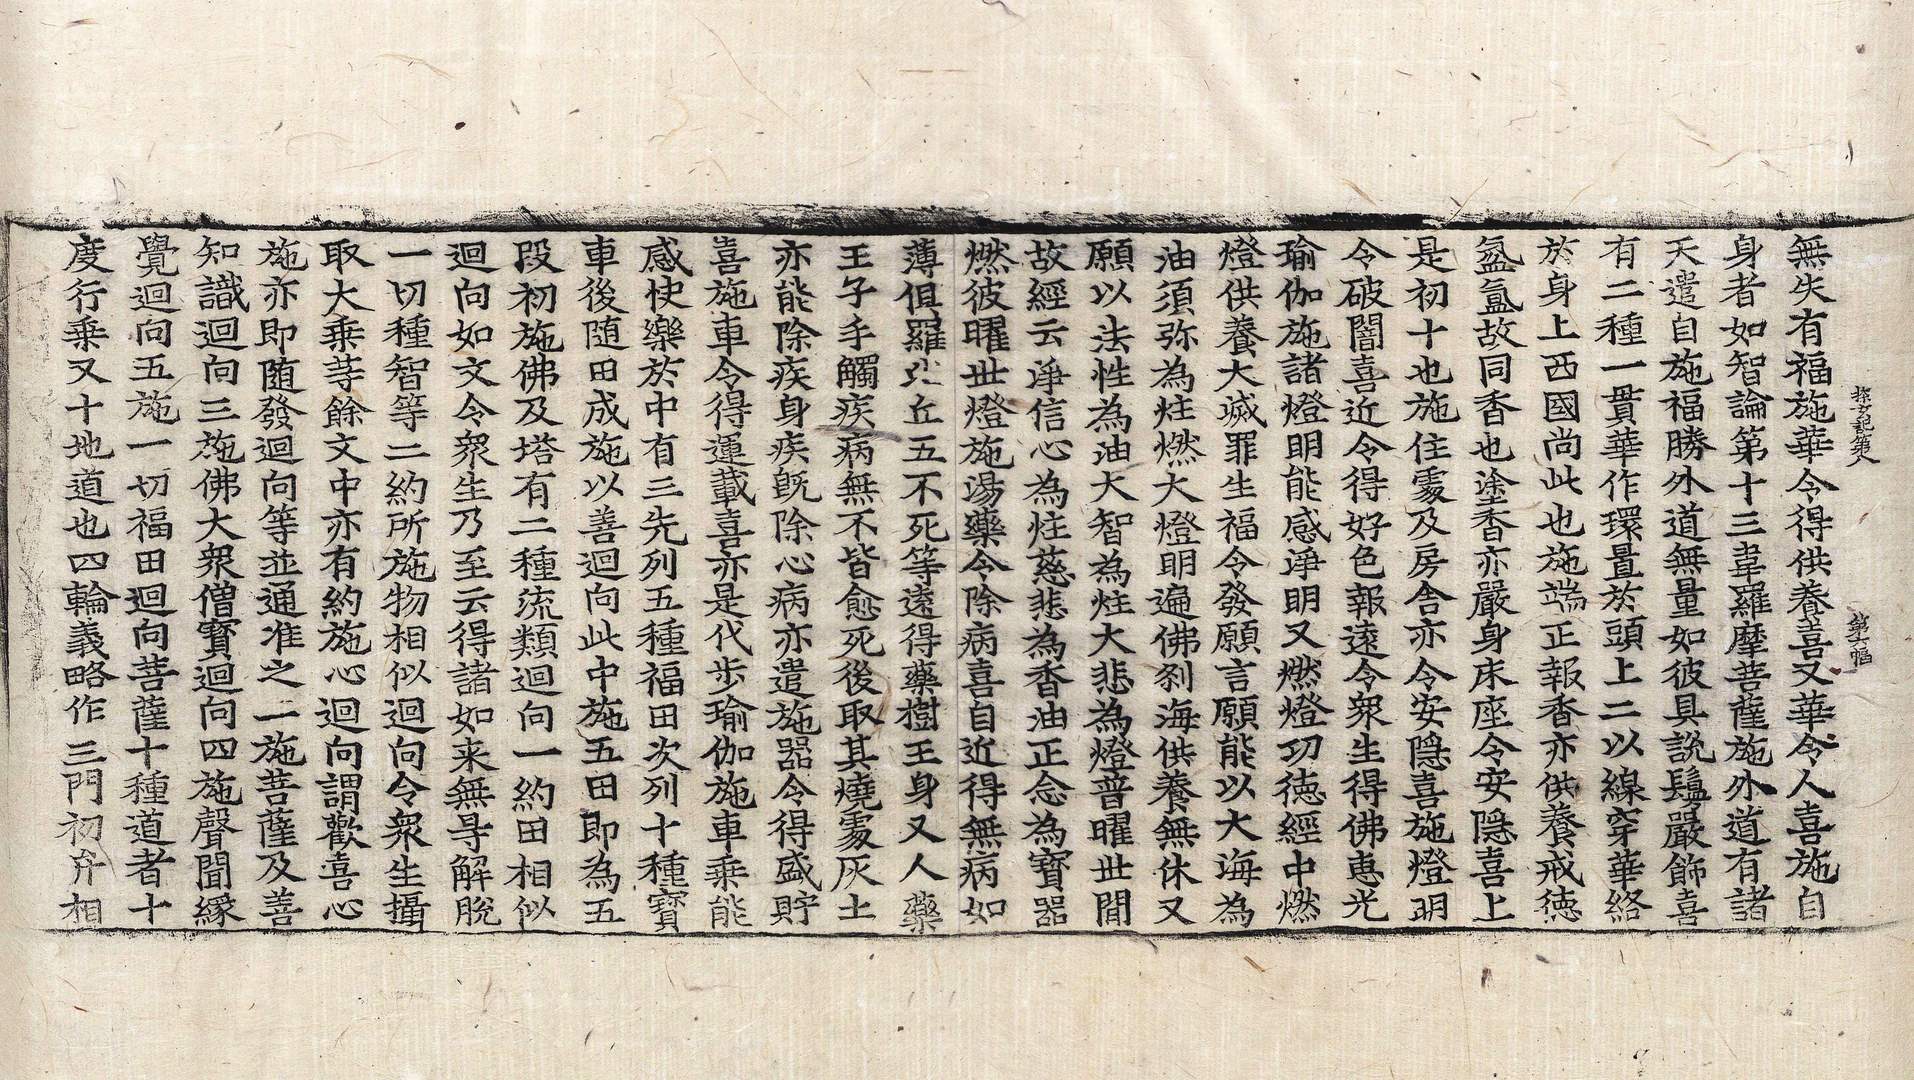 探玄記第八
第十六幅
無失有福施華令得供養喜又華令人喜施自
身者如智論第十三韋羅摩菩薩施外道有諸
天遣自施福勝外道無量如彼具說鬘嚴飾喜
有二種一貫華作環置於頭上二以線穿華絡
於身上西國尚此也施端正報香亦供養戒徳
氤氳故同香也塗香亦嚴身床座令安隠喜上
是初十也施住䖏及房舎亦令安隠喜施燈明
令破闇喜近令得好色報遠令衆生得佛恵光
瑜伽施諸燈明能感浄明又燃燈功徳經中燃
燈供養大滅罪生福令發願言願能以大海為
油須弥為炷燃大燈明遍佛刹海供養無休又
願以法性為油大智為炷大悲為燈普曜世間
故經云浄信心為炷慈悲為香油正念為寳器
燃彼曜世燈施湯藥令除病喜自近得無病如
薄俱羅比丘五不死等遠得藥樹王身又人藥
王子手觸疾病無不皆愈死後取其燒䖏灰土
亦能除疾身疾既除心病亦遣施器令得盛貯
喜施車令得運載喜亦是代步瑜伽施車乗能
感快樂於中有三先列五種福田次列十種寳
車後随田成施以善迴向此中施五田即為五
段初施佛及塔有二種流類迴向一約田相似
迴向如文令衆生乃至云得諸如来無㝵解脱
一切種智等二約所施物相似迴向令衆生攝
取大乗等餘文中亦有約施心迴向謂歡喜心
施亦即随發迴向等並通准之二施菩薩及善
知識迴向三施佛大衆僧寳迴向四施聲聞縁
覺迴向五施一切福田迴向菩薩十種道者十
度行乗又十地道也四輪義略作三門初弁相